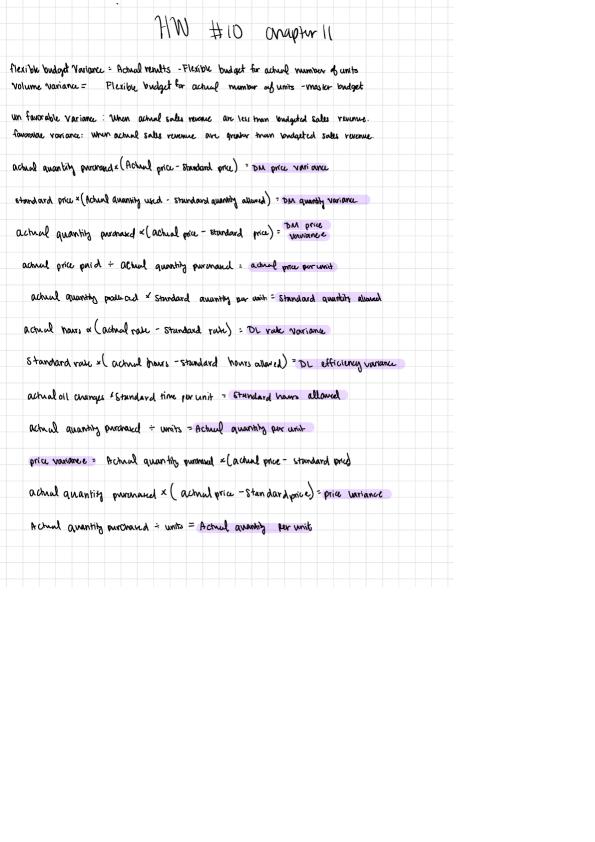 HW #10 Chapter 11
flexible budget Variance = Actual results - Flexible budget for actual number of units
Volume variance = Flexible budget for actual number of units - master budget
un favorable variance : When actual sales revenue are less than budgeted sales revenue.
favorable variance: When actual sales revenue are greater than budgeted sales revenue.
actual quantity purchased × (Actual price - Standard price) = DM price variance
standard price × (Actual quantity used - Standard quantity allowed) = DM quantity variance
actual quantity purchased × (actual price - standard price) = DM price variance
actual price paid ÷ actual quantity purchased = actual price per unit
actual quantity × standard quantity per unit = Standard quantity allowed
actual hours × (actual rate - Standard rate) = DL rate variance
Standard rate × (actual hours - standard hours allowed) = DL efficiency variance
actual oil changes × Standard time per unit = Standard hours allowed
actual quantity purchased ÷ units = Actual quantity per unit
price variance = Actual quantity purchased × (actual price - standard price)
actual quantity purchased × (actual price - Standard price) = price variance
Actual quantity purchased ÷ units = Actual quantity per unit